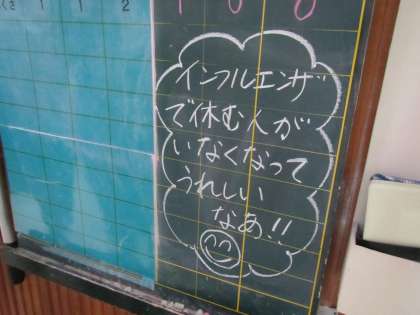 1 1 2
1 0 0
インフルエンザ
で休む人が
いなくなって
うれしい
なあ!!